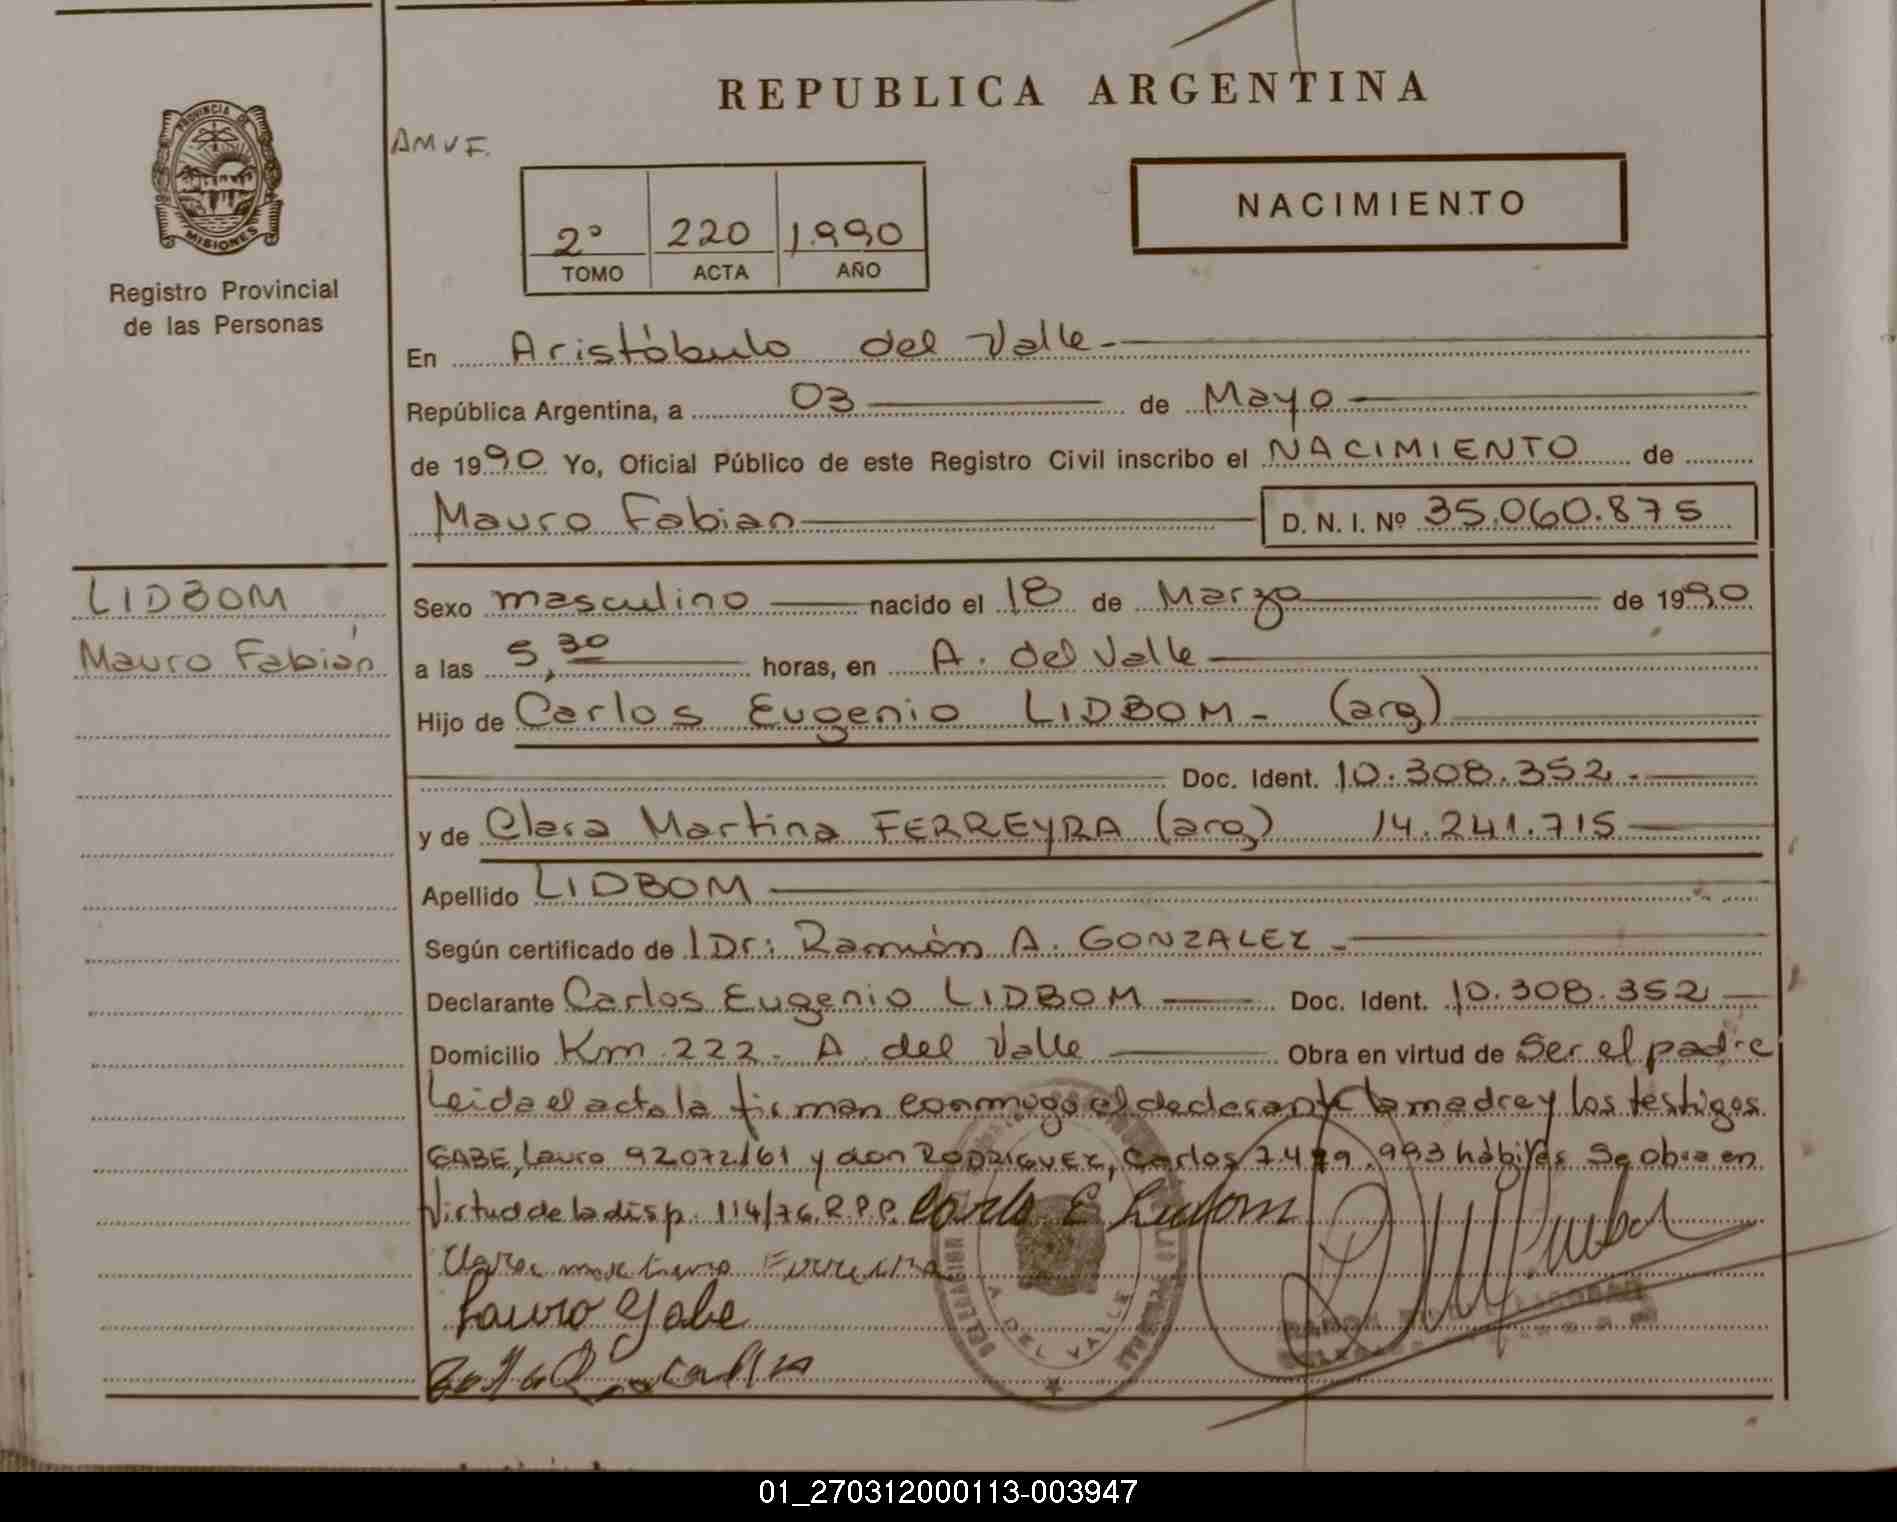 REPUBLICA ARGENTINA
PROVINCIA DE
MISIONES
Registro Provincial
de las Personas
AMVF.
2° 220 1.990
TOMO ACTA AÑO
NACIMIENTO
En Aristóbulo del Valle.-
República Argentina, a 03 de Mayo
de 1990 Yo, Oficial Público de este Registro Civil inscribo el NACIMIENTO de
Mauro Fabian D. N. I. Nº 35.060.875
LIDBOM
Mauro Fabián
Sexo masculino nacido el 18 de Marzo de 1990
a las 5,30 horas, en A. del Valle
Hijo de Carlos Eugenio LIDBOM - (arg)
Doc. Ident. 10.308.352.-
y de Clara Martina FERREYRA (arg) 14.241.715
Apellido LIDBOM
Según certificado de IDr: Ramón A. GONZALEZ -
Declarante Carlos Eugenio LIDBOM Doc. Ident. 10.308.352
Domicilio Km 222- A. del Valle Obra en virtud de Ser el padre
Leida el acta la firman conmigo el declarante la madre y los testigos
GABE, Lauro 92072161 y don RODRIGUEZ, Carlos 7.499.993 hábiles Se obra en
Virtud de la disp. 114/76.R.P.P. Carlo E Lidbom
Clara martina Ferreira
Lauro Gabe
DELEGACION
A DEL VALLE
01_270312000113-003947